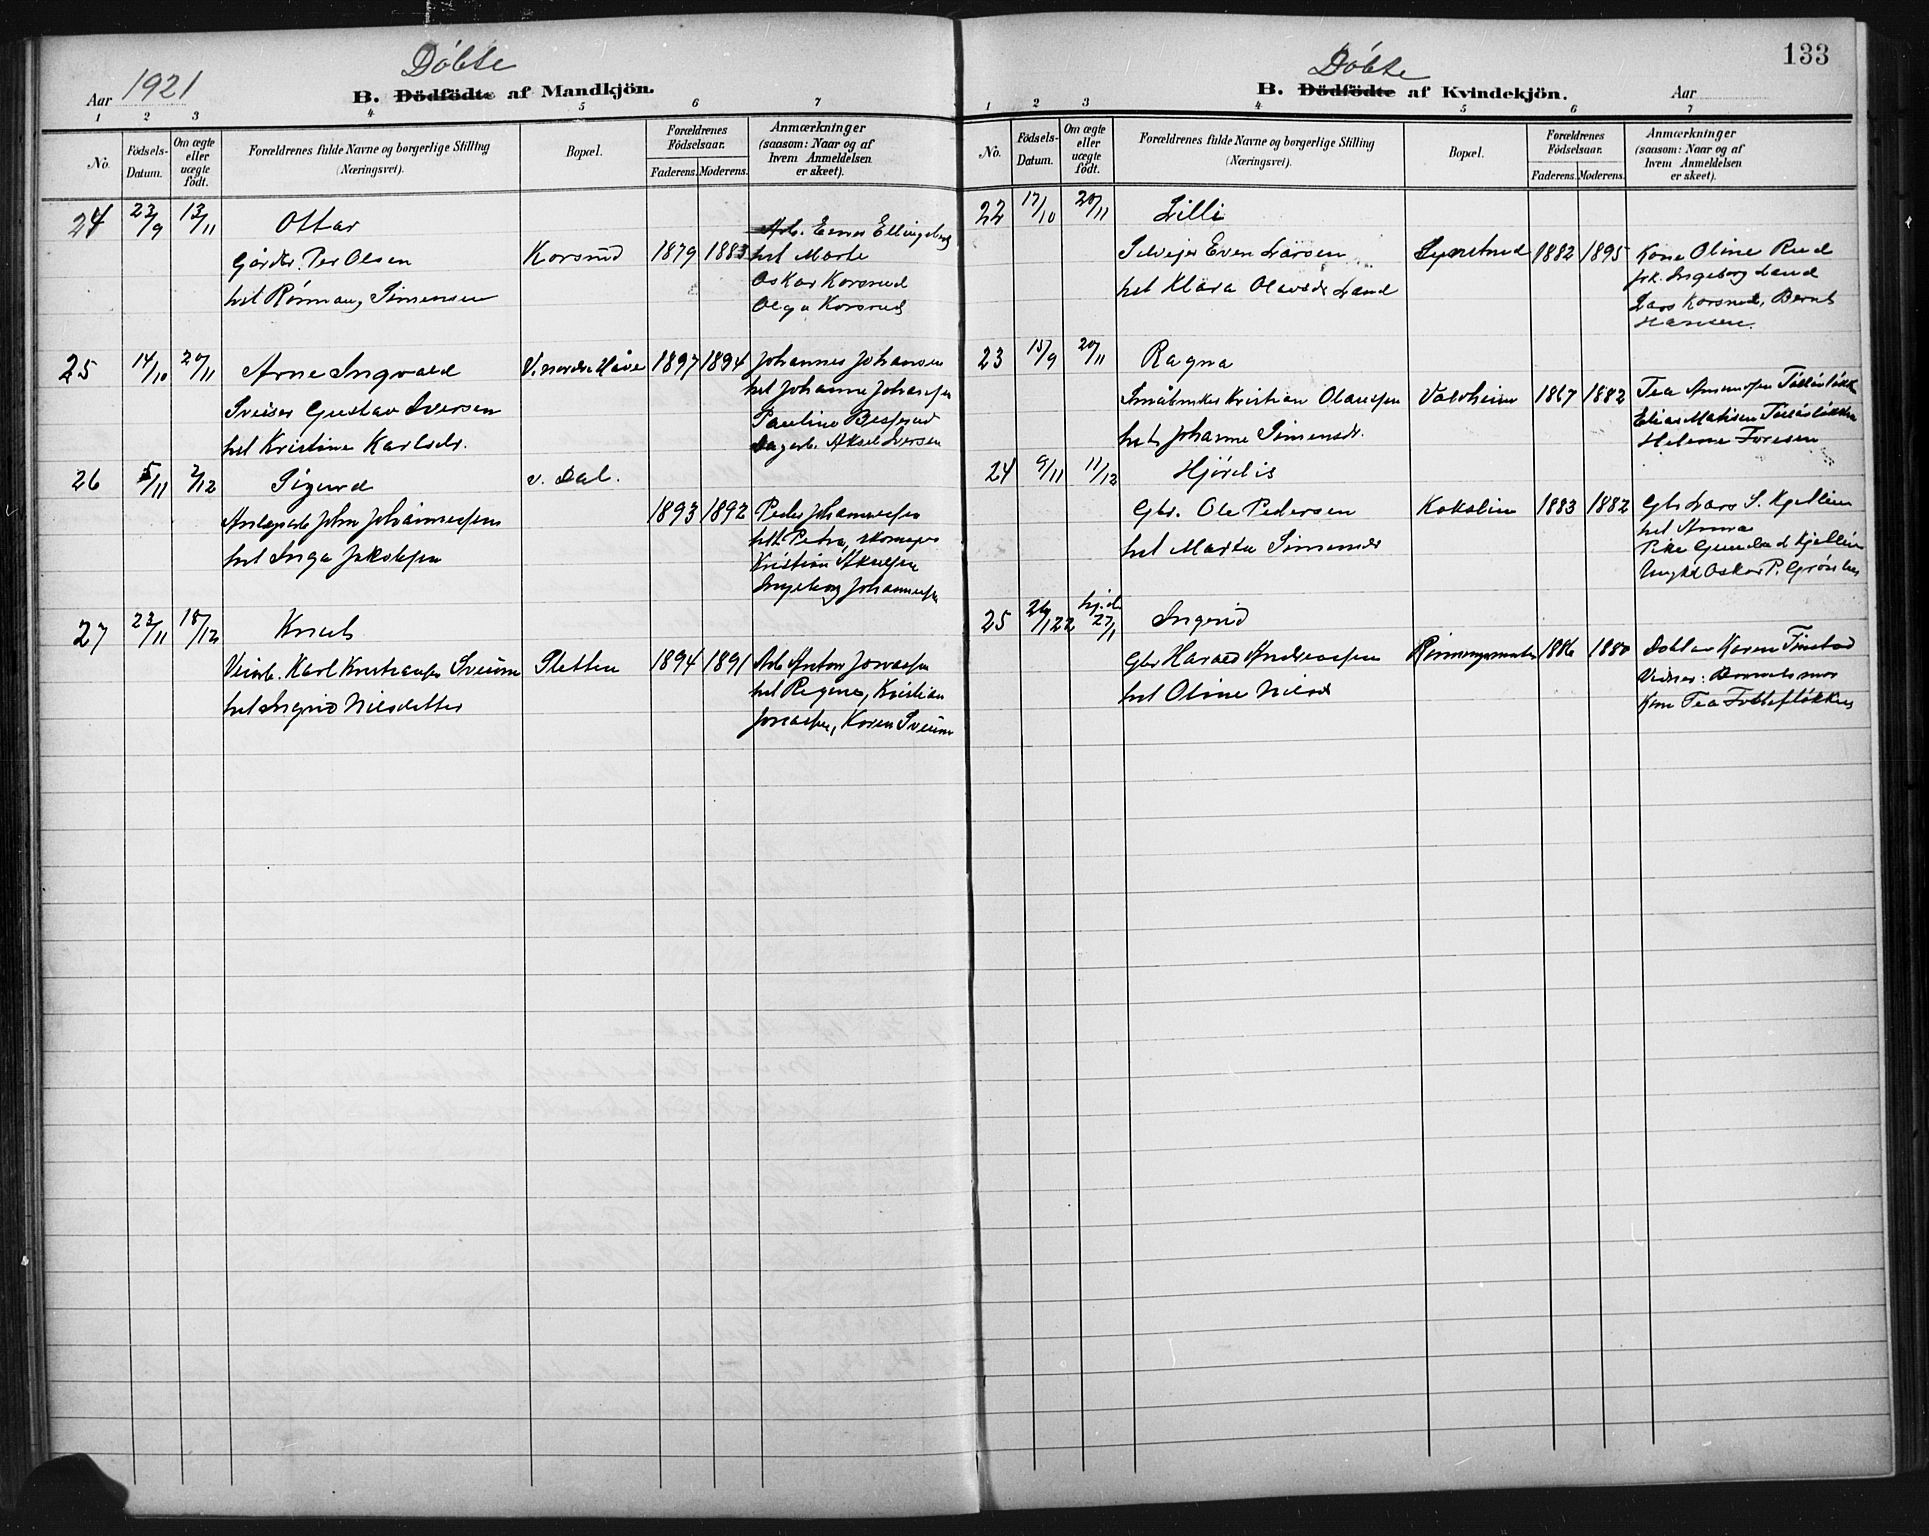 133
Aar 1921
Döbte
B. Dödfödte af Mandkjön.
1 2 3 4 5 6 7
No.
Födsels-Datum.
Om ægte eller uægte födt.
Forældrenes fulde Navne og borgerlige Stilling (Næringsvei).
Bopæl.
Forældrenes Födselsaar.
Faderens. Moderens.
Anmærkninger (saasom: Naar og af hvem Anmeldelsen er skeet).
24 23/9 13/11 Ottar
Gårdbr. Per Olsen Korsrud 1879 1883
hst Rønnaug Simensen
Arb. Einar Ellingsberg
hst Marte
Oskar Korsrud
Olga Korsrud
25 14/10 20/11 Arne Ingvald V. nordre Håve 1897 1894
Sveiser Gustav Iversen
hst Kristine Karlsdr.
Johannes Johansen
hst Johanne Johansen
Pauline
Dagarb. Aksel Iversen
26 5/11 2/12 Sigurd v. Dal.
Anlægsarb John Johannessen 1893 1892
hst Inga Jakobsen
Peder Johannessen
hst Petra, skomager
Kristian
Ingeborg Johannessen
27 23/11 18/12 Knut
Veiarb. Karl Knutsen Sveum Sletten 1894 1891
hst Ingrid Nilsdatter
Arb Anton Jonassen
hst Regine, Kristian
Jonassen, Karen Sveum
Döbte
B. Dödfödte af Kvindekjön.
Aar
1 2 3 4 5 6 7
No.
Födsels-Datum.
Om ægte eller uægte födt.
Forældrenes fulde Navne og borgerlige Stilling (Næringsvei).
Bopæl.
Forældrenes Födselsaar.
Faderens. Moderens.
Anmærkninger (saasom: Naar og af hvem Anmeldelsen er skeet).
22 17/10 20/11 Lilli
Selveier Even Larsen 1882 1895
hst Klara Olavsdr Land
Kone Oline Rud
frk. Ingeborg Land
Lars Korsrud, Bernt
Hansen.
23 15/9 20/11 Ragna
Småbruker Kristian Olaussen Valdheim 1867 1882
hst Johanne Simensdr.
Tea Amundsen
Elias Matisen
Helene Foresen
24 9/11 11/12 Hjørdis
Gbr. Ole Pedersen Kokslien 1883 1882
hst Marta Simensdr
Gbr Lars S. Kjellien
hst Anna
Pike Gunda Kjellien
Ungkl Oskar P.
25 26/12 hj.d. 22 27/1 Ingrid
Gbr Harald Andreassen 1886 1880
hst Oline Nilsd
Karen Finstad
Vidner: Barnets mor
Kone Tea